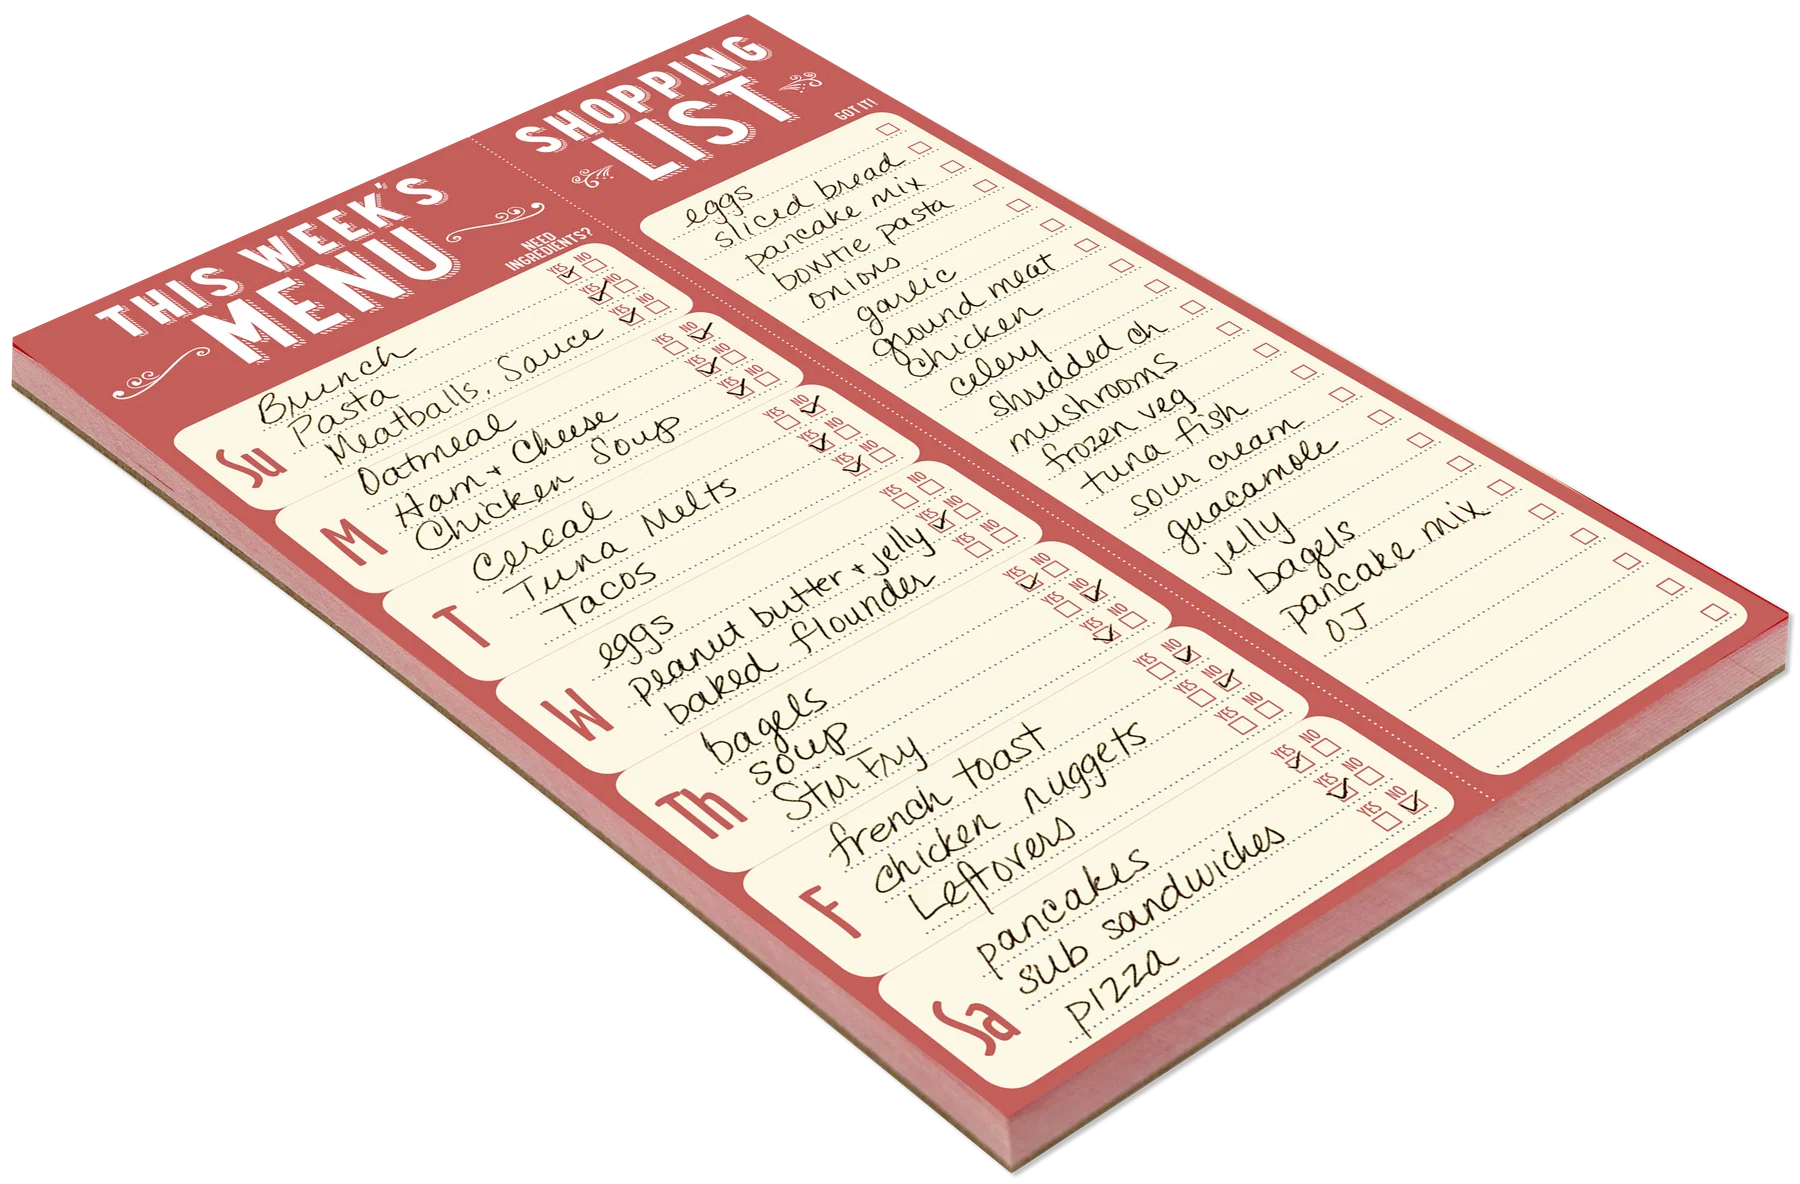 THIS WEEK'S
MENU
NEED
INGREDIENTS?
Su
Brunch
YES NO
Pasta
YES NO
Meatballs, Sauce
YES NO
M
Oatmeal
YES NO
Ham + Cheese
YES NO
Chicken Soup
YES NO
T
Cereal
YES NO
Tuna Melts
YES NO
Tacos
YES NO
W
eggs
YES NO
peanut butter + jelly
YES NO
baked flounder
YES NO
Th
bagels
YES NO
soup
YES NO
Stir Fry
YES NO
F
french toast
YES NO
chicken nuggets
YES NO
Leftovers
YES NO
Sa
pancakes
YES NO
sub sandwiches
YES NO
pizza
YES NO
SHOPPING
LIST
GOT IT!
eggs
sliced bread
pancake mix
bowtie pasta
onions
garlic
ground meat
chicken
celery
shredded ch
mushrooms
frozen veg
tuna fish
sour cream
guacamole
jelly
bagels
pancake mix
OJ